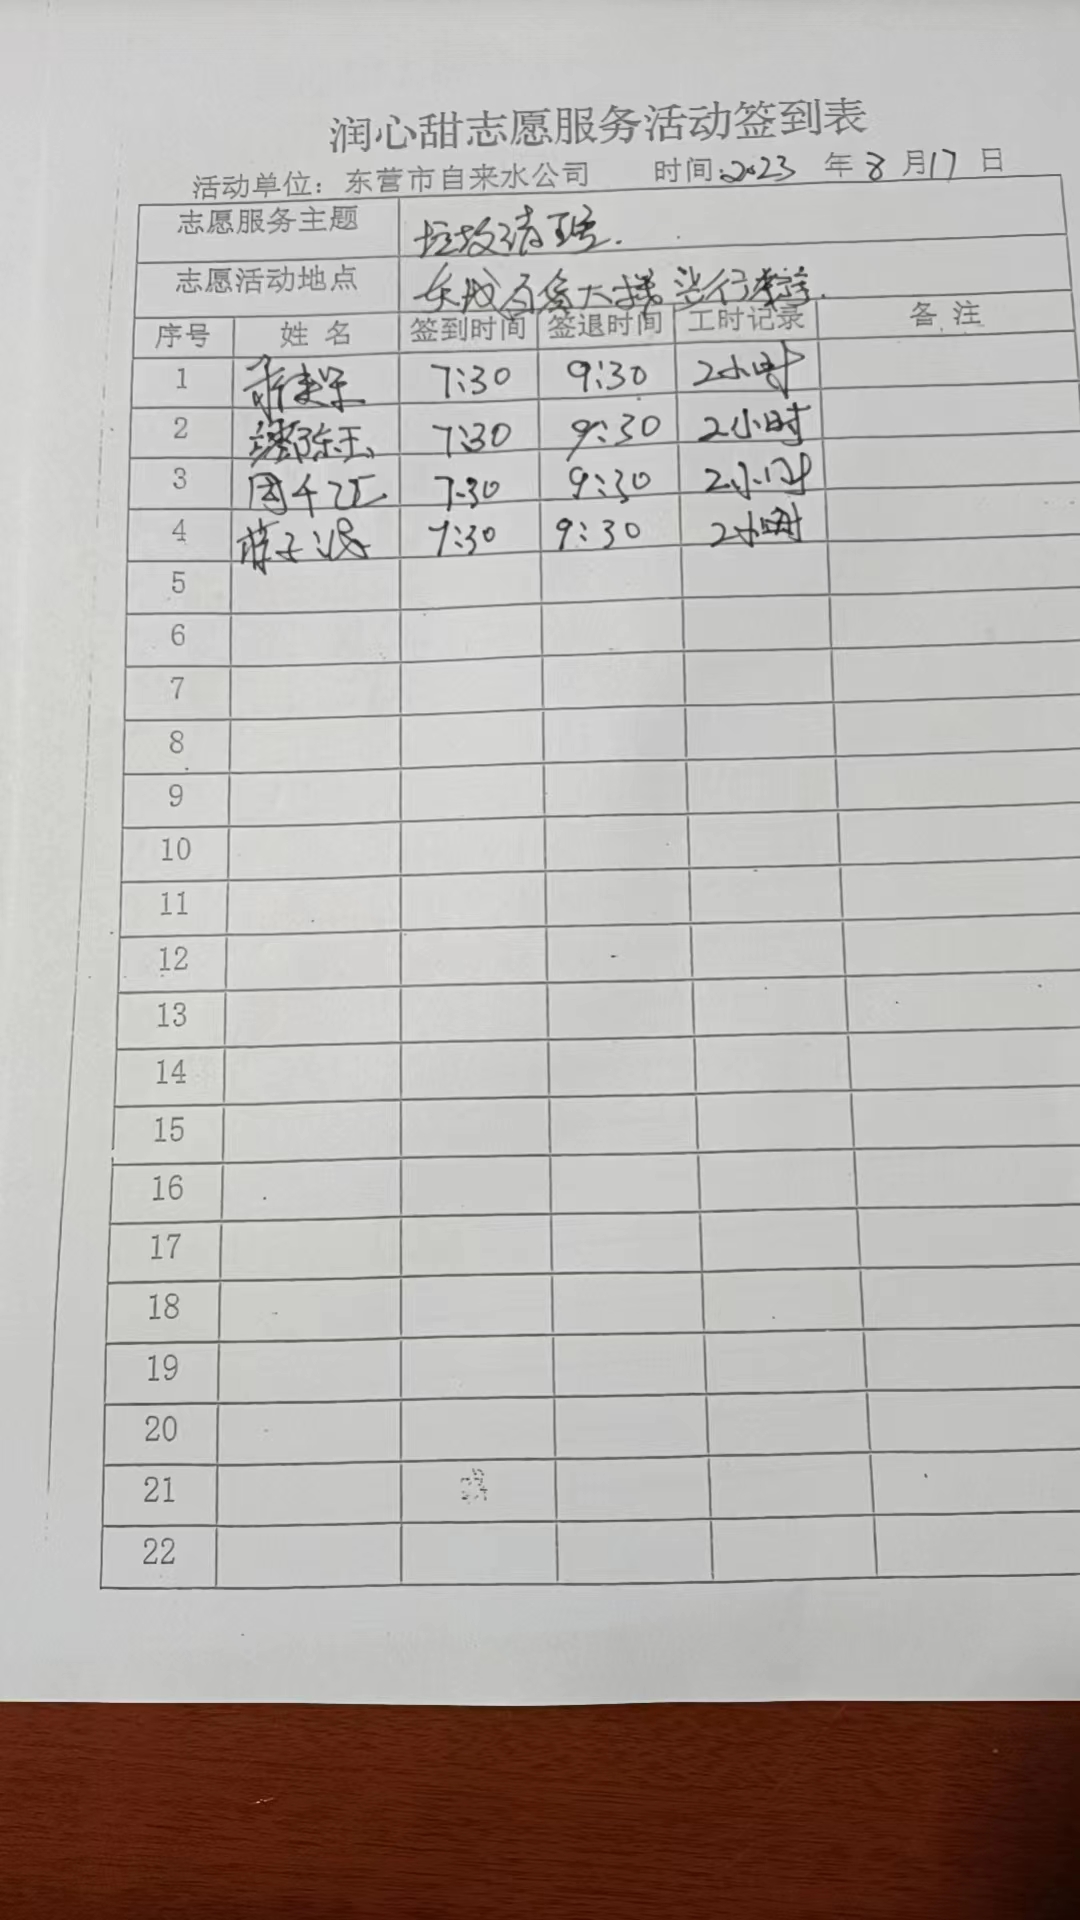 润心甜志愿服务活动签到表
活动单位：东营市自来水公司 时间：2023 年 8 月 17 日
志愿服务主题 垃圾清理.
志愿活动地点 东城百货大楼
序号 姓名 签到时间 签退时间 工时记录 备注
1 7:30 9:30 2小时
2 7:30 9:30 2小时
3 7:30 9:30 2小时
4 7:30 9:30 2小时
5
6
7
8
9
10
11
12
13
14
15
16
17
18
19
20
21
22